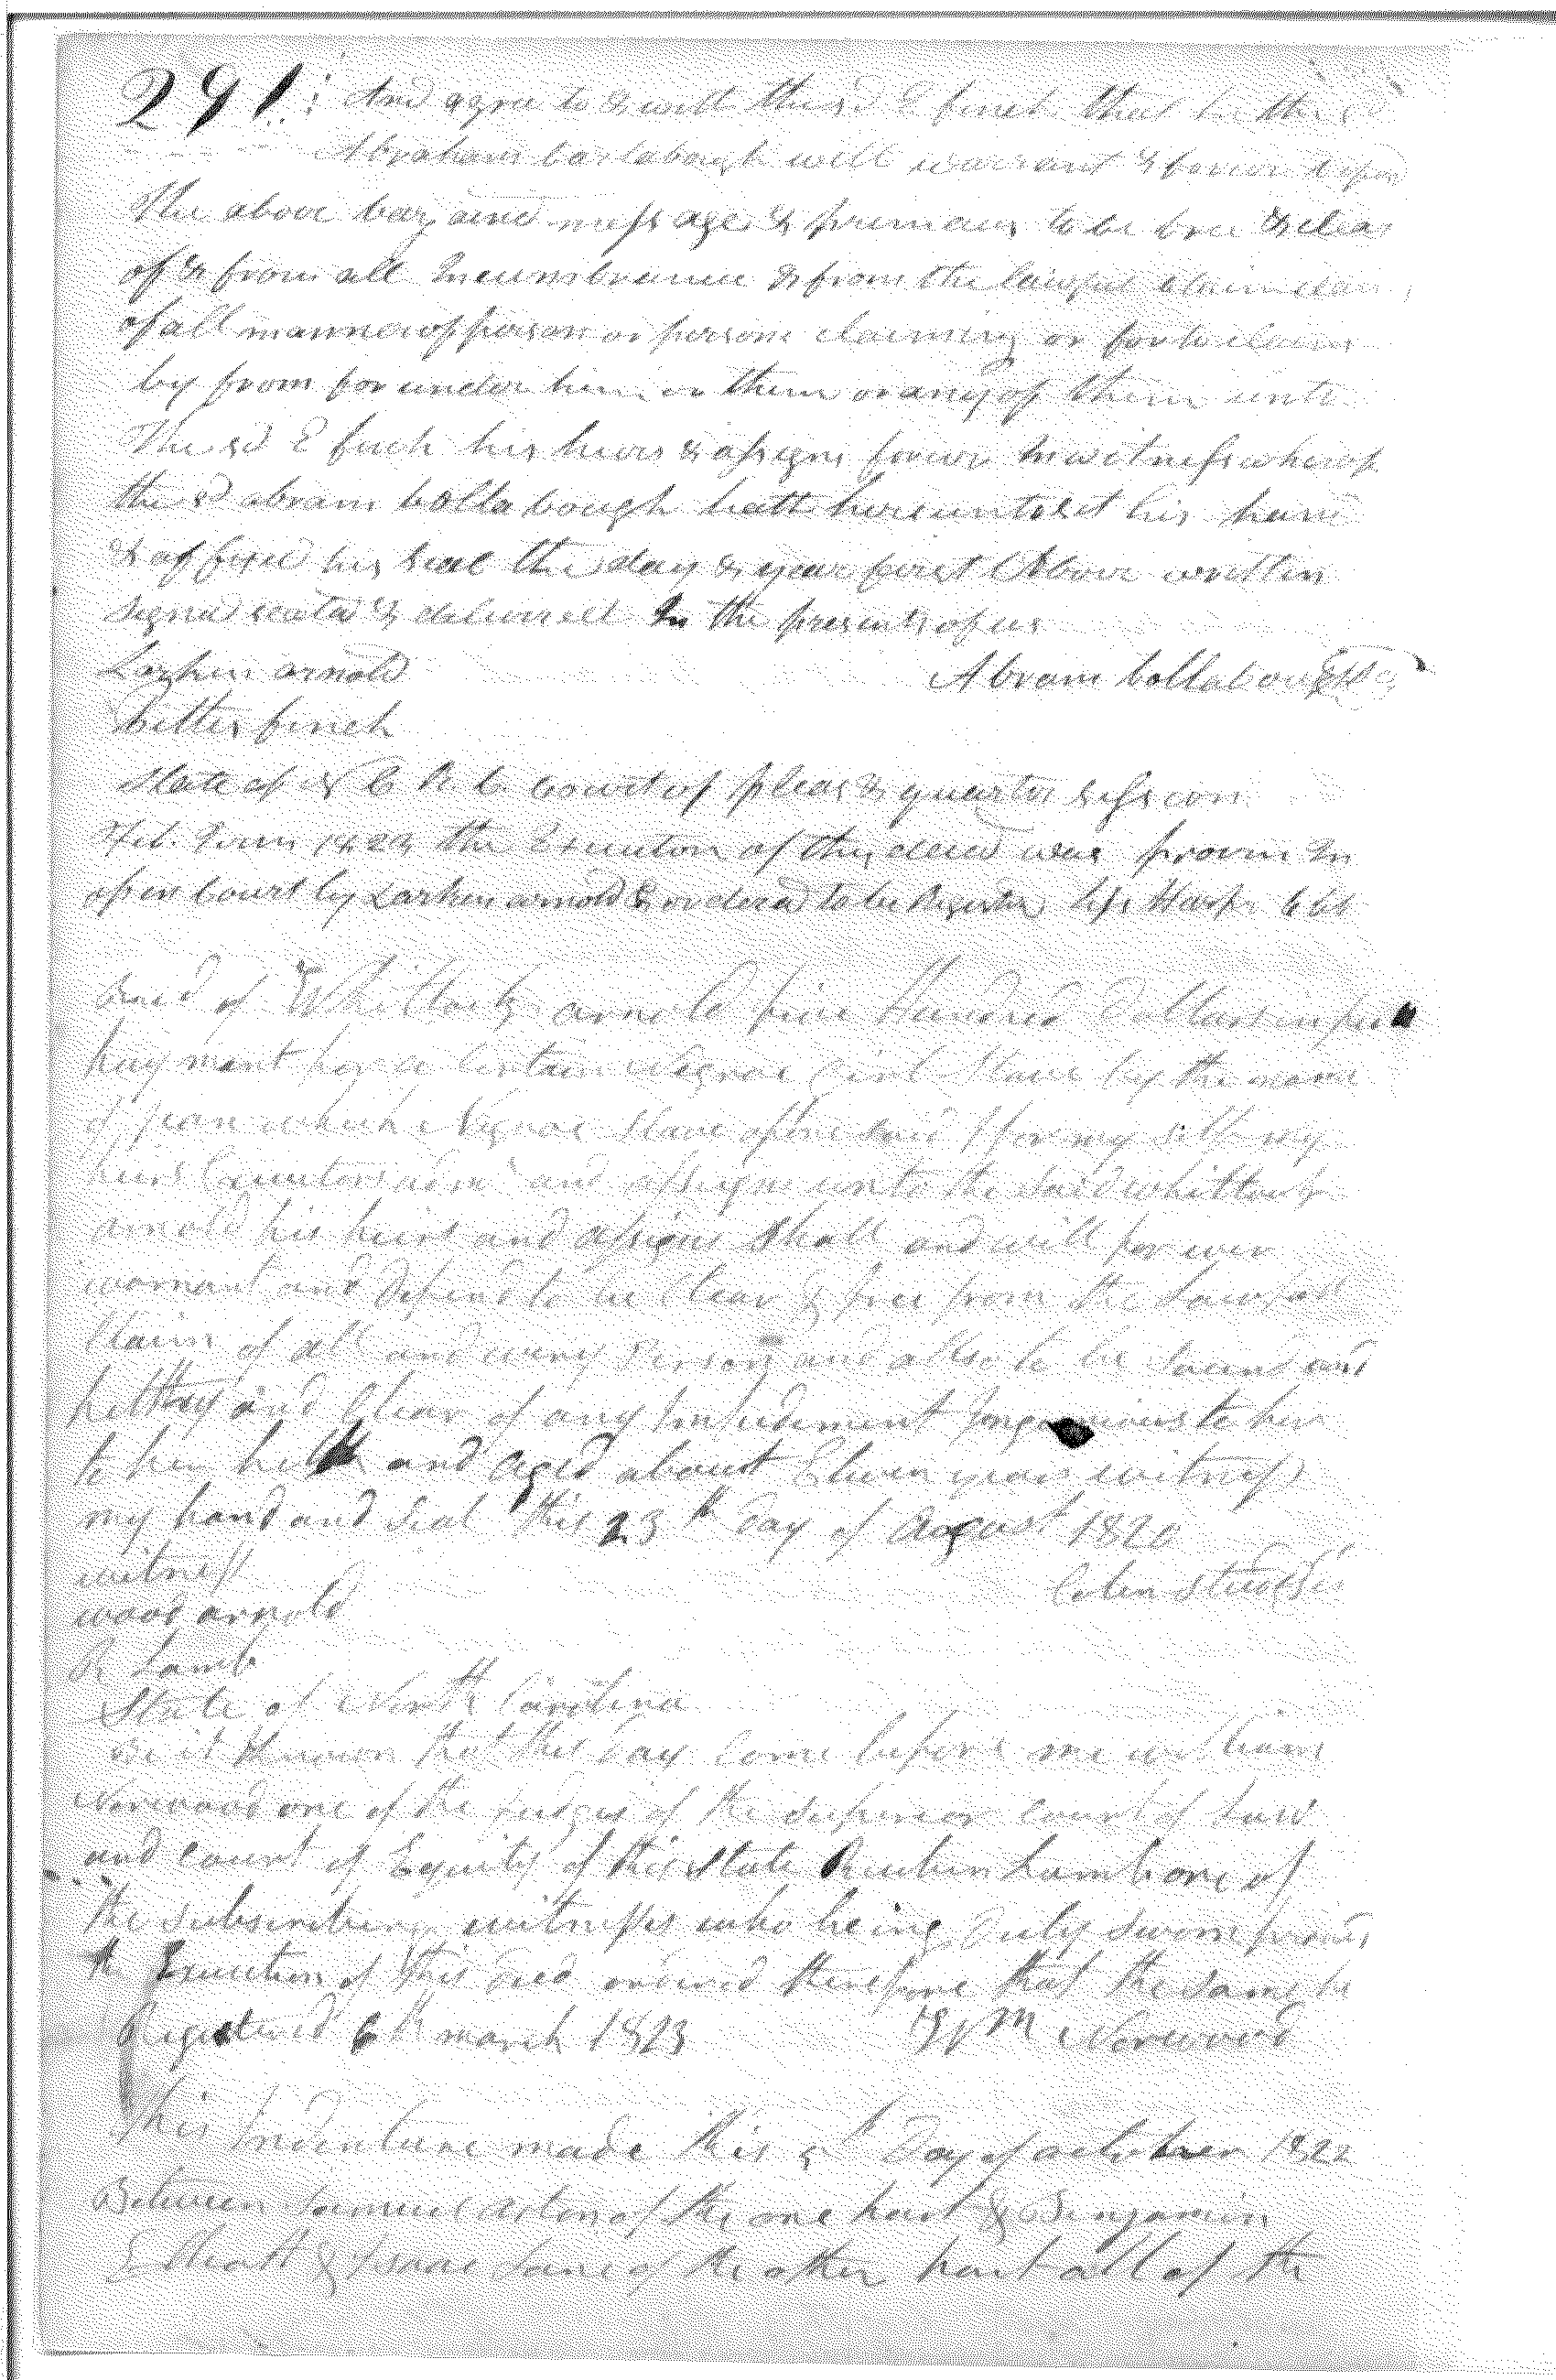 291: And agree to & with the sd E finch that he the sd
Abraham Collabough will warrant & forever defend
The above bargained messages & premices to be free & clear
of & from all Incumbrance & from the lawful claim
of all manner of person or persons claiming or for to claim
by from for under him or them or any of them unto
The sd E finch his heirs & assigns forever In witness whereof
the sd abram Collabough hath hereunto set his hand
& affixed his seal the day & year first Above written
Signed seald & delivered In the presents of us
Larkin arnold Abram Collabough
finch
State of N C R C Court of pleas & quarter session
Feb. Term 1823 the Execution of this deed was proven In
open Court by Larkin arnold & ordered to be Register Jess Harper Clk
Received of Whitlock arnold five Hundred Dollars in full
payment for a Certain Negroe Girl Slave by the name
of which Negroe Slave afore said I for my self my
heirs Executors adm and assigns unto the said whitlock
arnold his heirs and assigns Shall and will for ever
warrant and defend to be Clear & free from the Lawfull
Claim of all and every Person and allso to be Sound and
helthay and Clear of any Impediment to her
to her helth and aged about Eleven years witness
my hand and Seal this 23th day of August 1820
witness Colen Steed
wood arnold
R Lamb
State of North Carolina
Be it known that this day Come before me william
Norwood one of the Judges of the superior Court of Law
and Court of Equity of this State Reuben Lamb one of
the subscribing witnesses who being Duly sworn proved
the Execution of this deed ordered therefore that the same be
Registered 6th march 1823 Wm Norwood
This Indenture made this Day of october 1822
Between Samuel of the one part & Benjamin
Elliott & Isaac Lane of the other part all of the